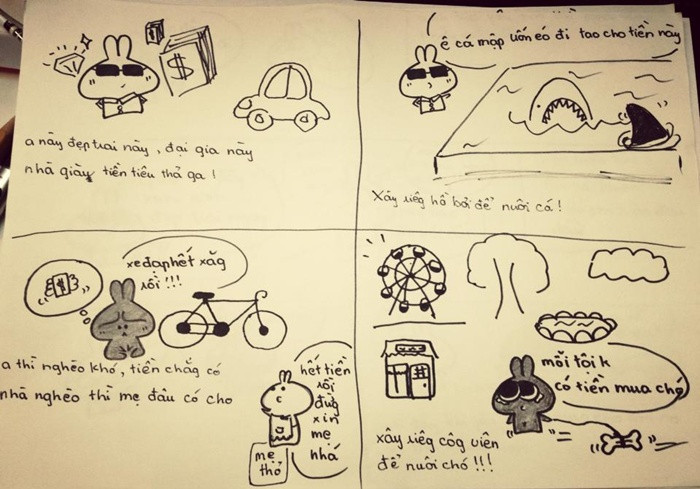 $
a này đẹp trai này, đại gia này
nhà giày tiền tiêu thả ga!
ê cá mập uốn éo đi tao cho tiền này
Xây riêg hồ bơi để nuôi cá!
$
xe đạp hết xăg
rồi !!!
a thì nghèo khó, tiền chẳg có
nhà nghèo thì mẹ đâu có cho
hết tiền
rồi
đừg
xin
mẹ
nhá
mẹ
thỏ
mỗi tội k
có tiền mua chó
xây riêg côg viên
để nuôi chó !!!